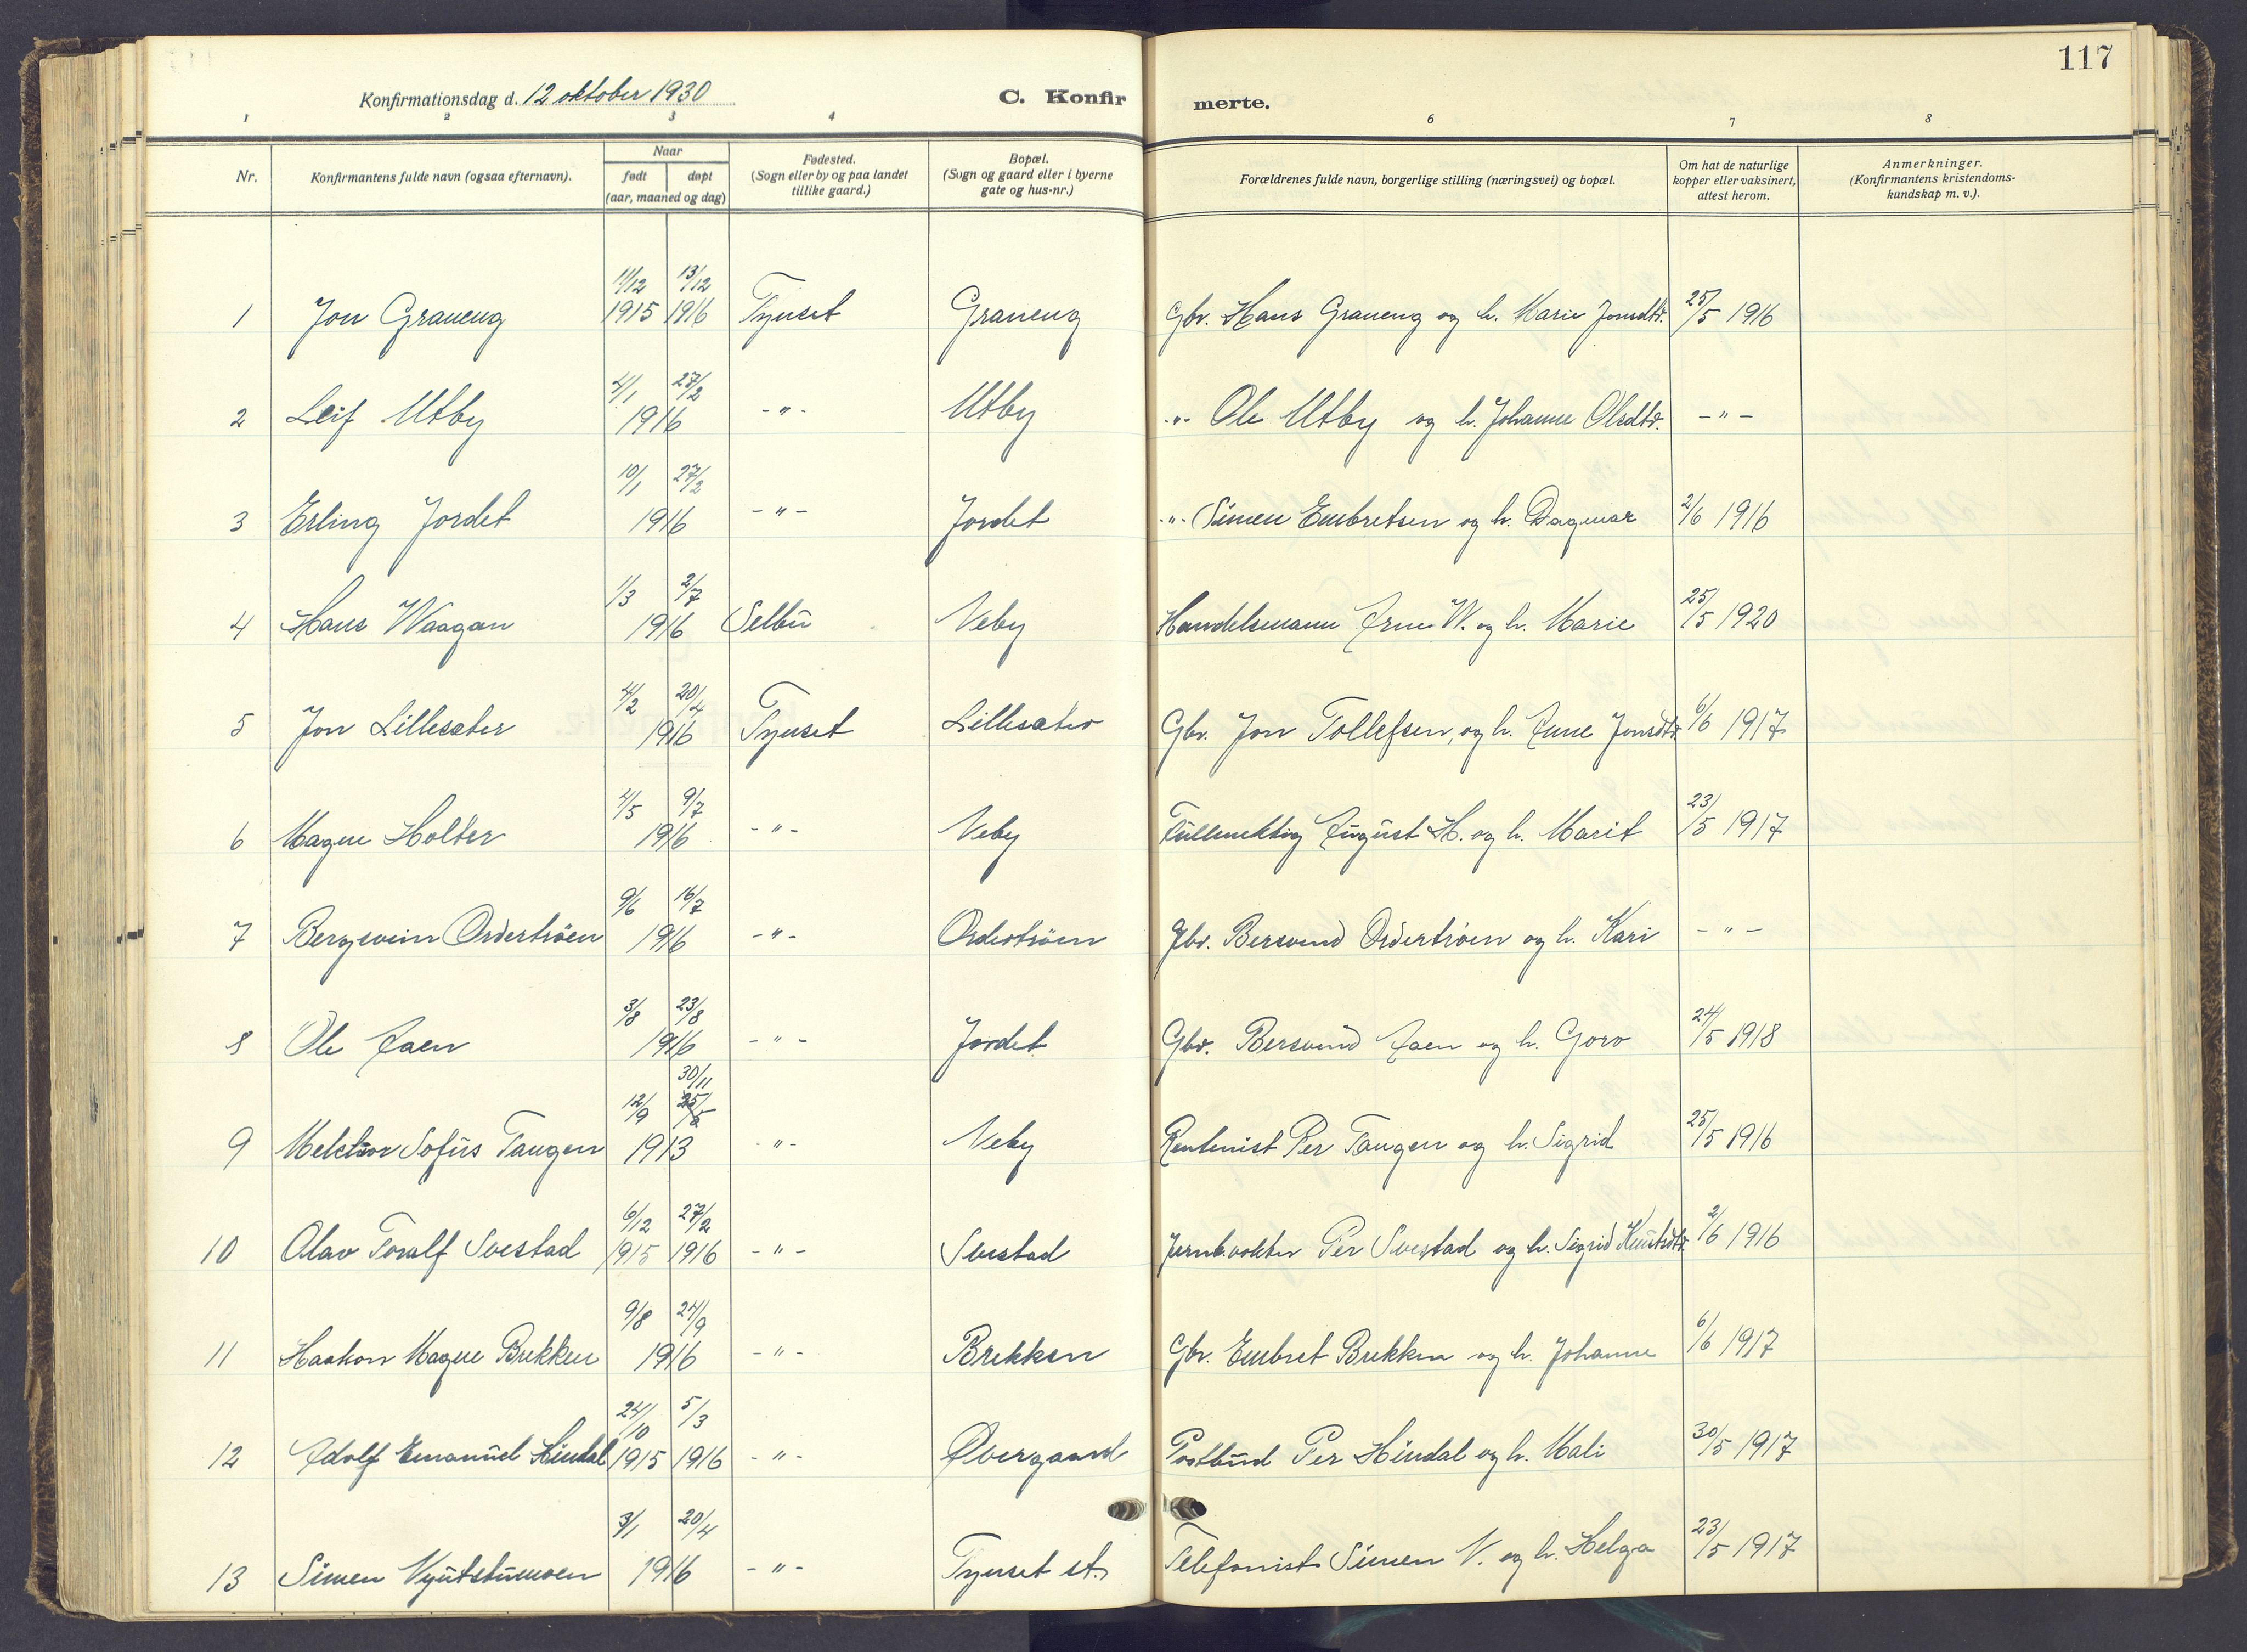 117
Konfirmationsdag d. 12 oktober 1930
C. Konfirmerte.
1 2 3 4 6 7 8
Nr. | Konfirmantens fulde navn (ogsaa efternavn). | Naar født døpt (aar, maaned og dag) | Fødested. (Sogn eller by og paa landet tillike gaard.) | Bopæl. (Sogn og gaard eller i byerne gate og hus-nr.) | Forældrenes fulde navn, borgerlige stilling (næringsvei) og bopæl. | Om hat de naturlige kopper eller vaksinert, attest herom. | Anmerkninger. (Konfirmantens kristendoms-kundskap m. v.).
1 Jon Graneng 11/12 1915 13/12 1916 Tynset Graneng Gbr. Hans Graneng og h. Marie Jonsdtr. 25/5 1916
2 Leif Utby 4/1 27/2 1916 -"- Utby -"- Ole Utby og h. Johanne Olsdtr. -"-
3 Erling Jordet 10/1 27/2 1916 -"- Jordet -"- Simen Embretsen og h. Dagmar 2/6 1916
4 Hans Waagan 1/3 2/7 1916 Selbu Neby Handelsmann Arne W. og h. Marie 25/5 1920
5 Jon Lillesæter 4/2 20/4 1916 Tynset Lillesæter Gbr. Jon Tollefsen, og h. Anne Jonsdtr. 6/6 1917
6 Magne Holter 4/5 9/7 1916 -"- Neby Fullmektig August H. og h. Marit 23/5 1917
7 Bergsvein Ordertrøen 9/6 16/7 1916 -"- Ordertrøen Gbr. Bersvend Ordertrøen og h. Kari -"-
8 Ole Aaen 3/8 23/8 1916 -"- Jordet Gbr. Bersvend Aaen og h. Goro 24/5 1918
9 Melchior Sofus Tangen 12/9 30/11 25/5 1913 -"- Neby Rentenist Per Tangen og h. Sigrid 25/5 1916
10 Olav Toralf Svestad 6/12 1915 27/2 1916 -"- Svestad Jernb.vokter Per Svestad og h. Sigrid Knutsdtr. 2/6 1916
11 Haakon Magne Brekken 9/8 24/9 1916 -"- Brekken Gbr. Embret Brekken og h. Johanne 6/6 1917
12 Adolf Emanuel Hindal 24/10 1915 5/3 1916 -"- Øvergaard Postbud Per Hindal og h. Mali 30/5 1917
13 Simen Nyutstumoen 3/1 20/4 1916 -"- Tynset st. Telefonist Simen N. og h. Helga 23/5 1917